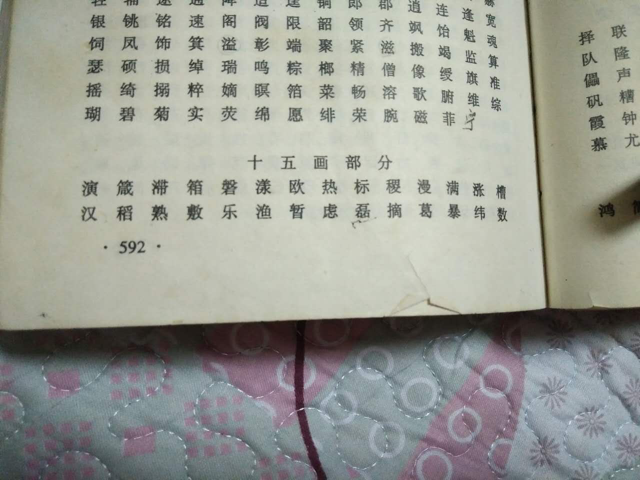 银 铫 铭 速 阁 阀 限 铜 郎 郡 逍 连 逢 宽
饲 凤 饰 箕 溢 彰 端 韶 领 齐 飒 饴 魁 魂
瑟 硕 损 绰 瑞 鸣 粽 聚 紧 滋 搬 竭 监 算
摇 绮 搦 粹 嫡 瞑 箔 榔 精 僧 像 绶 旗 准
瑚 碧 菊 实 荧 绵 愿 菜 畅 溶 歌 腑 维 综
绯 荣 腕 磁 菲
十五画部分
演 箴 滞 箱 磐 漾 欧 热 标 稷 漫 满 涨 槽
汉 稻 熟 敷 乐 渔 暂 虑 磊 摘 葛 暴 纬 数
· 592 ·
择 联
队 隆
儡 声
矾 糟
霞 钟
慕 尤
鸿